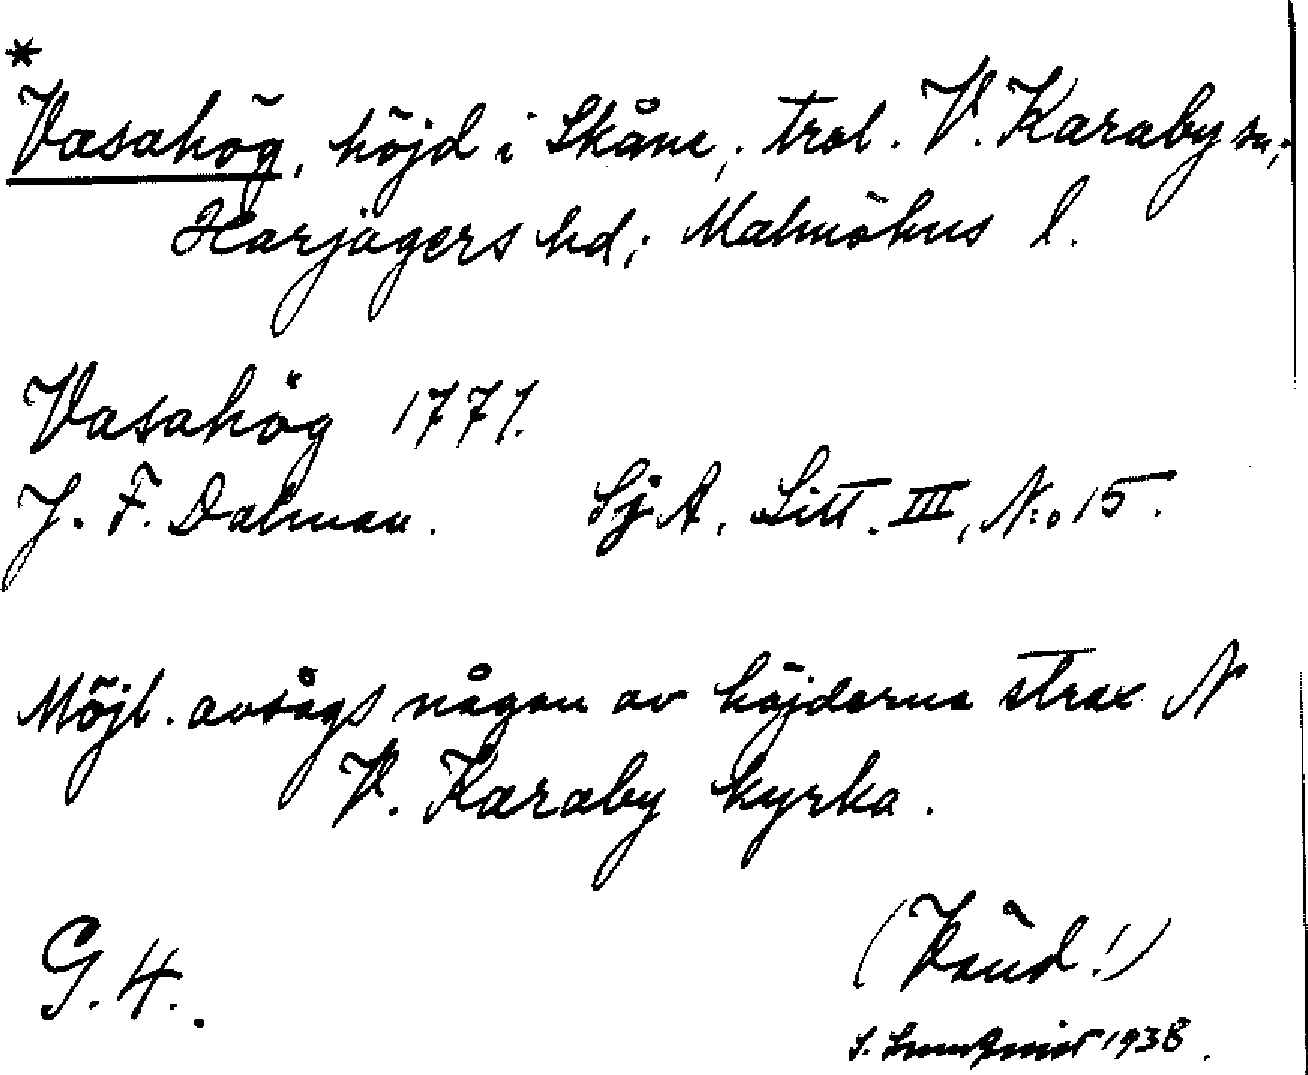 *
Vasahög, höjd i Skåne, trol. V. Karaby sn,
Harjagers hd, Malmöhus l.
Vasahög 1771.
J. F. Dalman. Sj A, Litt. III, No 15.
Möjl. avsågs någon av höjderna strax N
V. Karaby kyrka.
G. 4.
(
!)
S. 1938.